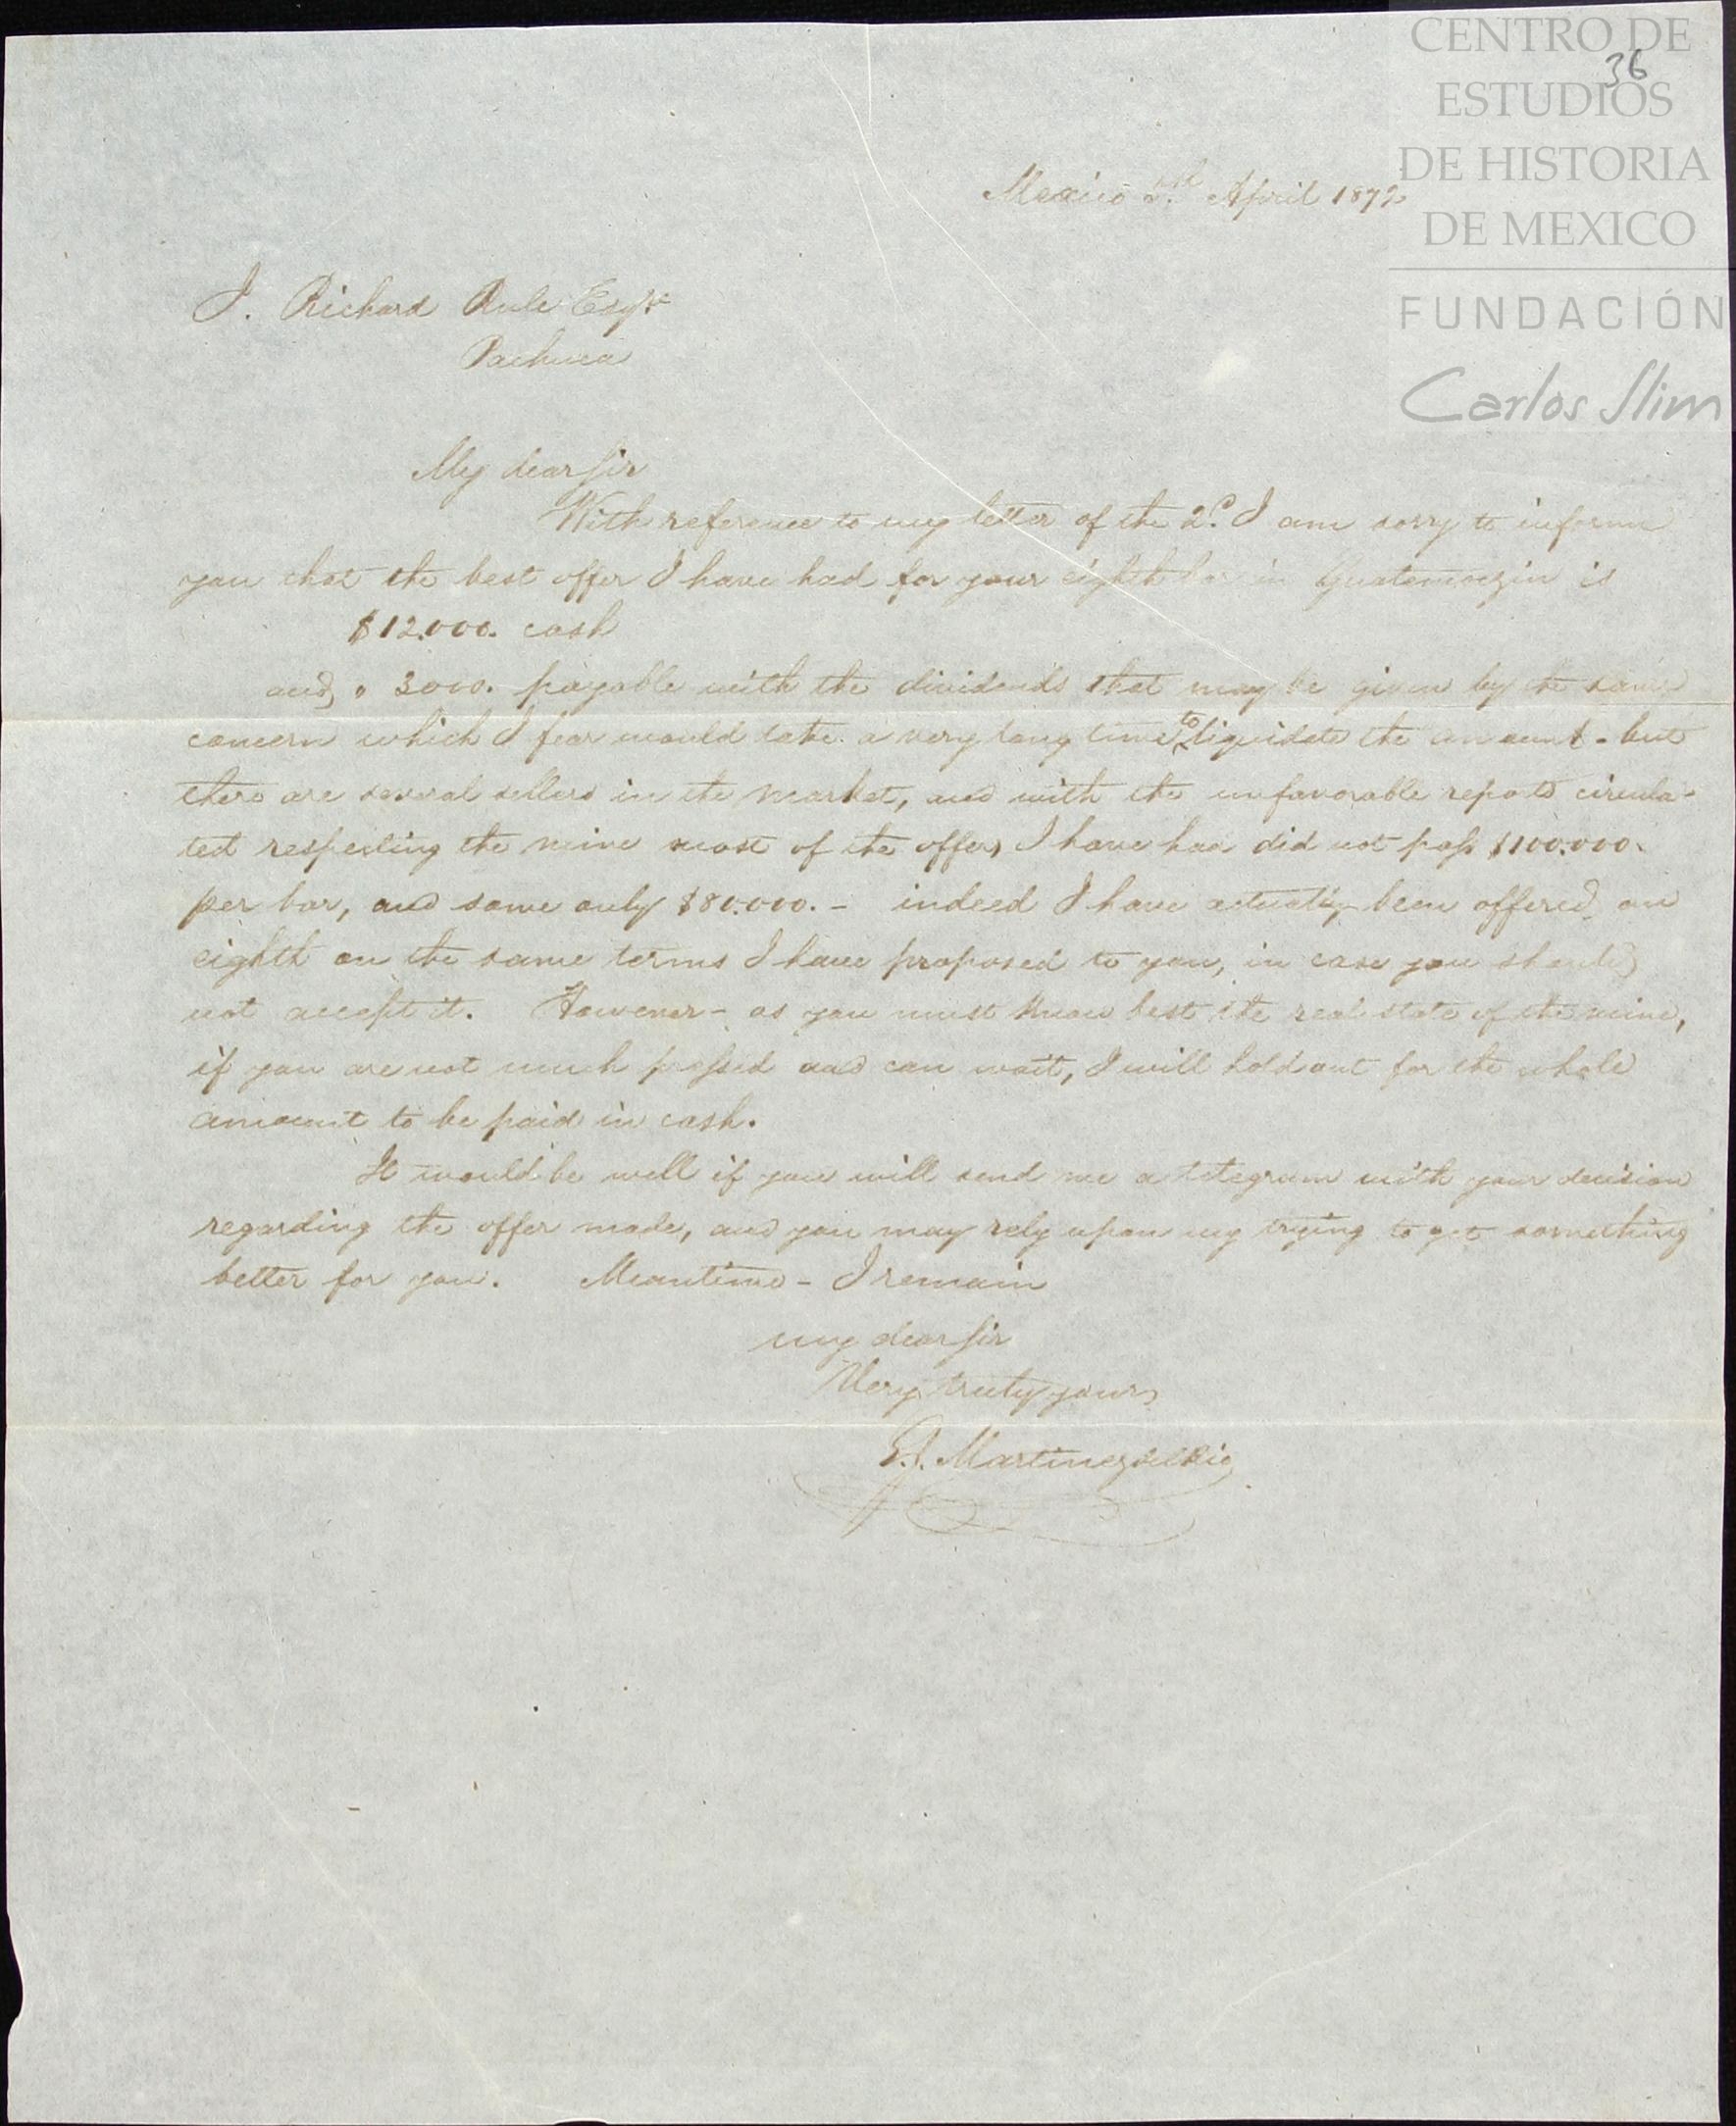 CENTRO DE
ESTUDIOS
DE HISTORIA
DE MEXICO
FUNDACIÓN
Carlos Slim
36
Mexico April 1872
J. Richard Rule Esqr
Pachuca
My dear Sir
With reference to my letter of the 2d. I am sorry to inform
you that the best offer I have had for your eighth bar in Guatemoczin is
$12.000. cash
and " 3000. payable with the dividends that may be given by the same
concern which I fear would take a very long time to liquidate the amount - but
there are several sellers in the market, and with the unfavorable reports circula-
ted respecting the mine most of the offers I have had did not pass $100.000.
per bar, and some only $80.000. - indeed I have actually been offered an
eighth on the same terms I have proposed to you, in case you should
not accept it. However - as you must know best the real state of the mine,
if you are not much pressed and can wait, I will hold out for the whole
amount to be paid in cash.
It would be well if you will send me a telegram with your decision
regarding the offer made, and you may rely upon my trying to get something
better for you. Meantime - I remain
my dear Sir
Very truly yours
Martinez del Rio